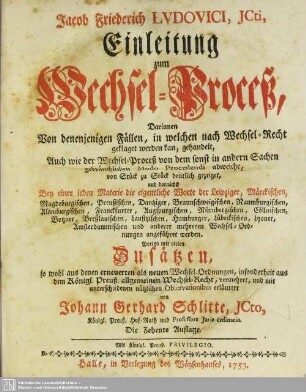 Jacob Friederich LVDOVICI, JCti,
Einleitung
zum
Wechsel-Proceß,
Darinnen
Von denenjenigen Fällen, in welchen nach Wechsel-Recht
geklaget werden kan, gehandelt,
Auch wie der Wechsel-Proceß von dem sonst in andern Sachen
gewöhnlichen Modo Procedendi abweiche,
von Stück zu Stück deutlich gezeiget,
und darnächst
Bey einer jeden Materie die eigentliche Worte der Leipziger, Märckischen,
Magdeburgischen, Preußischen, Dantziger, Braunschweigischen, Naumburgischen,
Altenburgischen, Franckfurter, Augspurgischen, Nürnbergischen, Cöllnischen,
Botzner, Breßlauischen, Hamburger, Lübeckischen,
Amsterdammischen und anderer mehreren Wechsel-Ordnungen
angeführet werden.
mit vielen
Zusätzen,
so wohl aus denen erneuerten als neuen Wechsel-Ordnungen, insonderheit aus
dem Königl. Preuß. allgemeinen Wechsel-Recht, vermehret, und mit
unterschiedenen nützlichen Observationibus erläutert
von
Johann Gerhard Schlitte, JCto,
Königl. Preuß. Hof-Rath und Professore Juris ordinario.
Die Zehente Auflage.
Mit Königl. Preuß. PRIVILEGIO.
Halle, in Verlegung des Wäysenhauses, 1753.